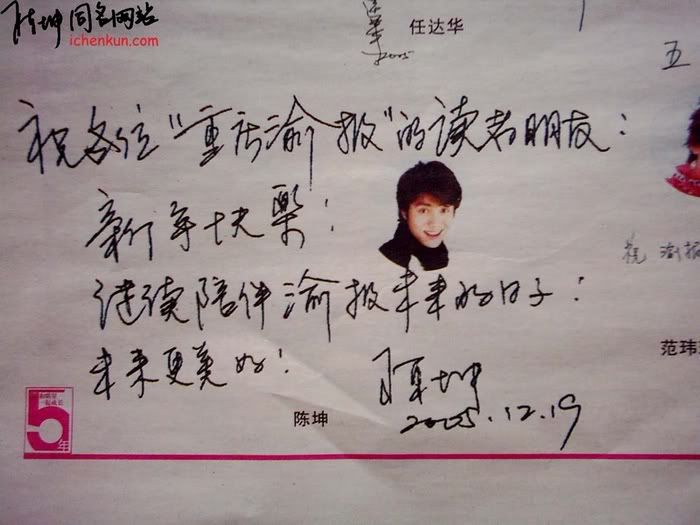 陈坤 同名网站
ichenkun.com
2005
任达华
五
祝各位“重庆渝报”的读者朋友：
新年快樂！
祝 渝报
继读陪伴渝报未来的日子！
未来更美好！
范玮
陈坤
2005.12.19
陈坤
5年